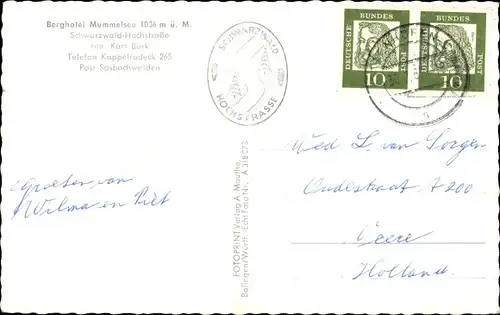 Berghotel Mummelsee 1036 m ü. M.
Schwarzwald-Hochstraße
Karl Burk
Telefon Kappelrodeck 265
Post Sasbachwalden
SCHWARZWALD
HOCHSTRASSE
DEUTSCHE BUNDESPOST
10
DEUTSCHE BUNDESPOST
10
Groeten van
Wilma en Piet
FOTOPRINT Verlag A. Mauthe,
Balingen/Württ. Echt Foto Nr. A 318073
Wed L. van Sorgen
Oudestraat A 200
Veere
Holland